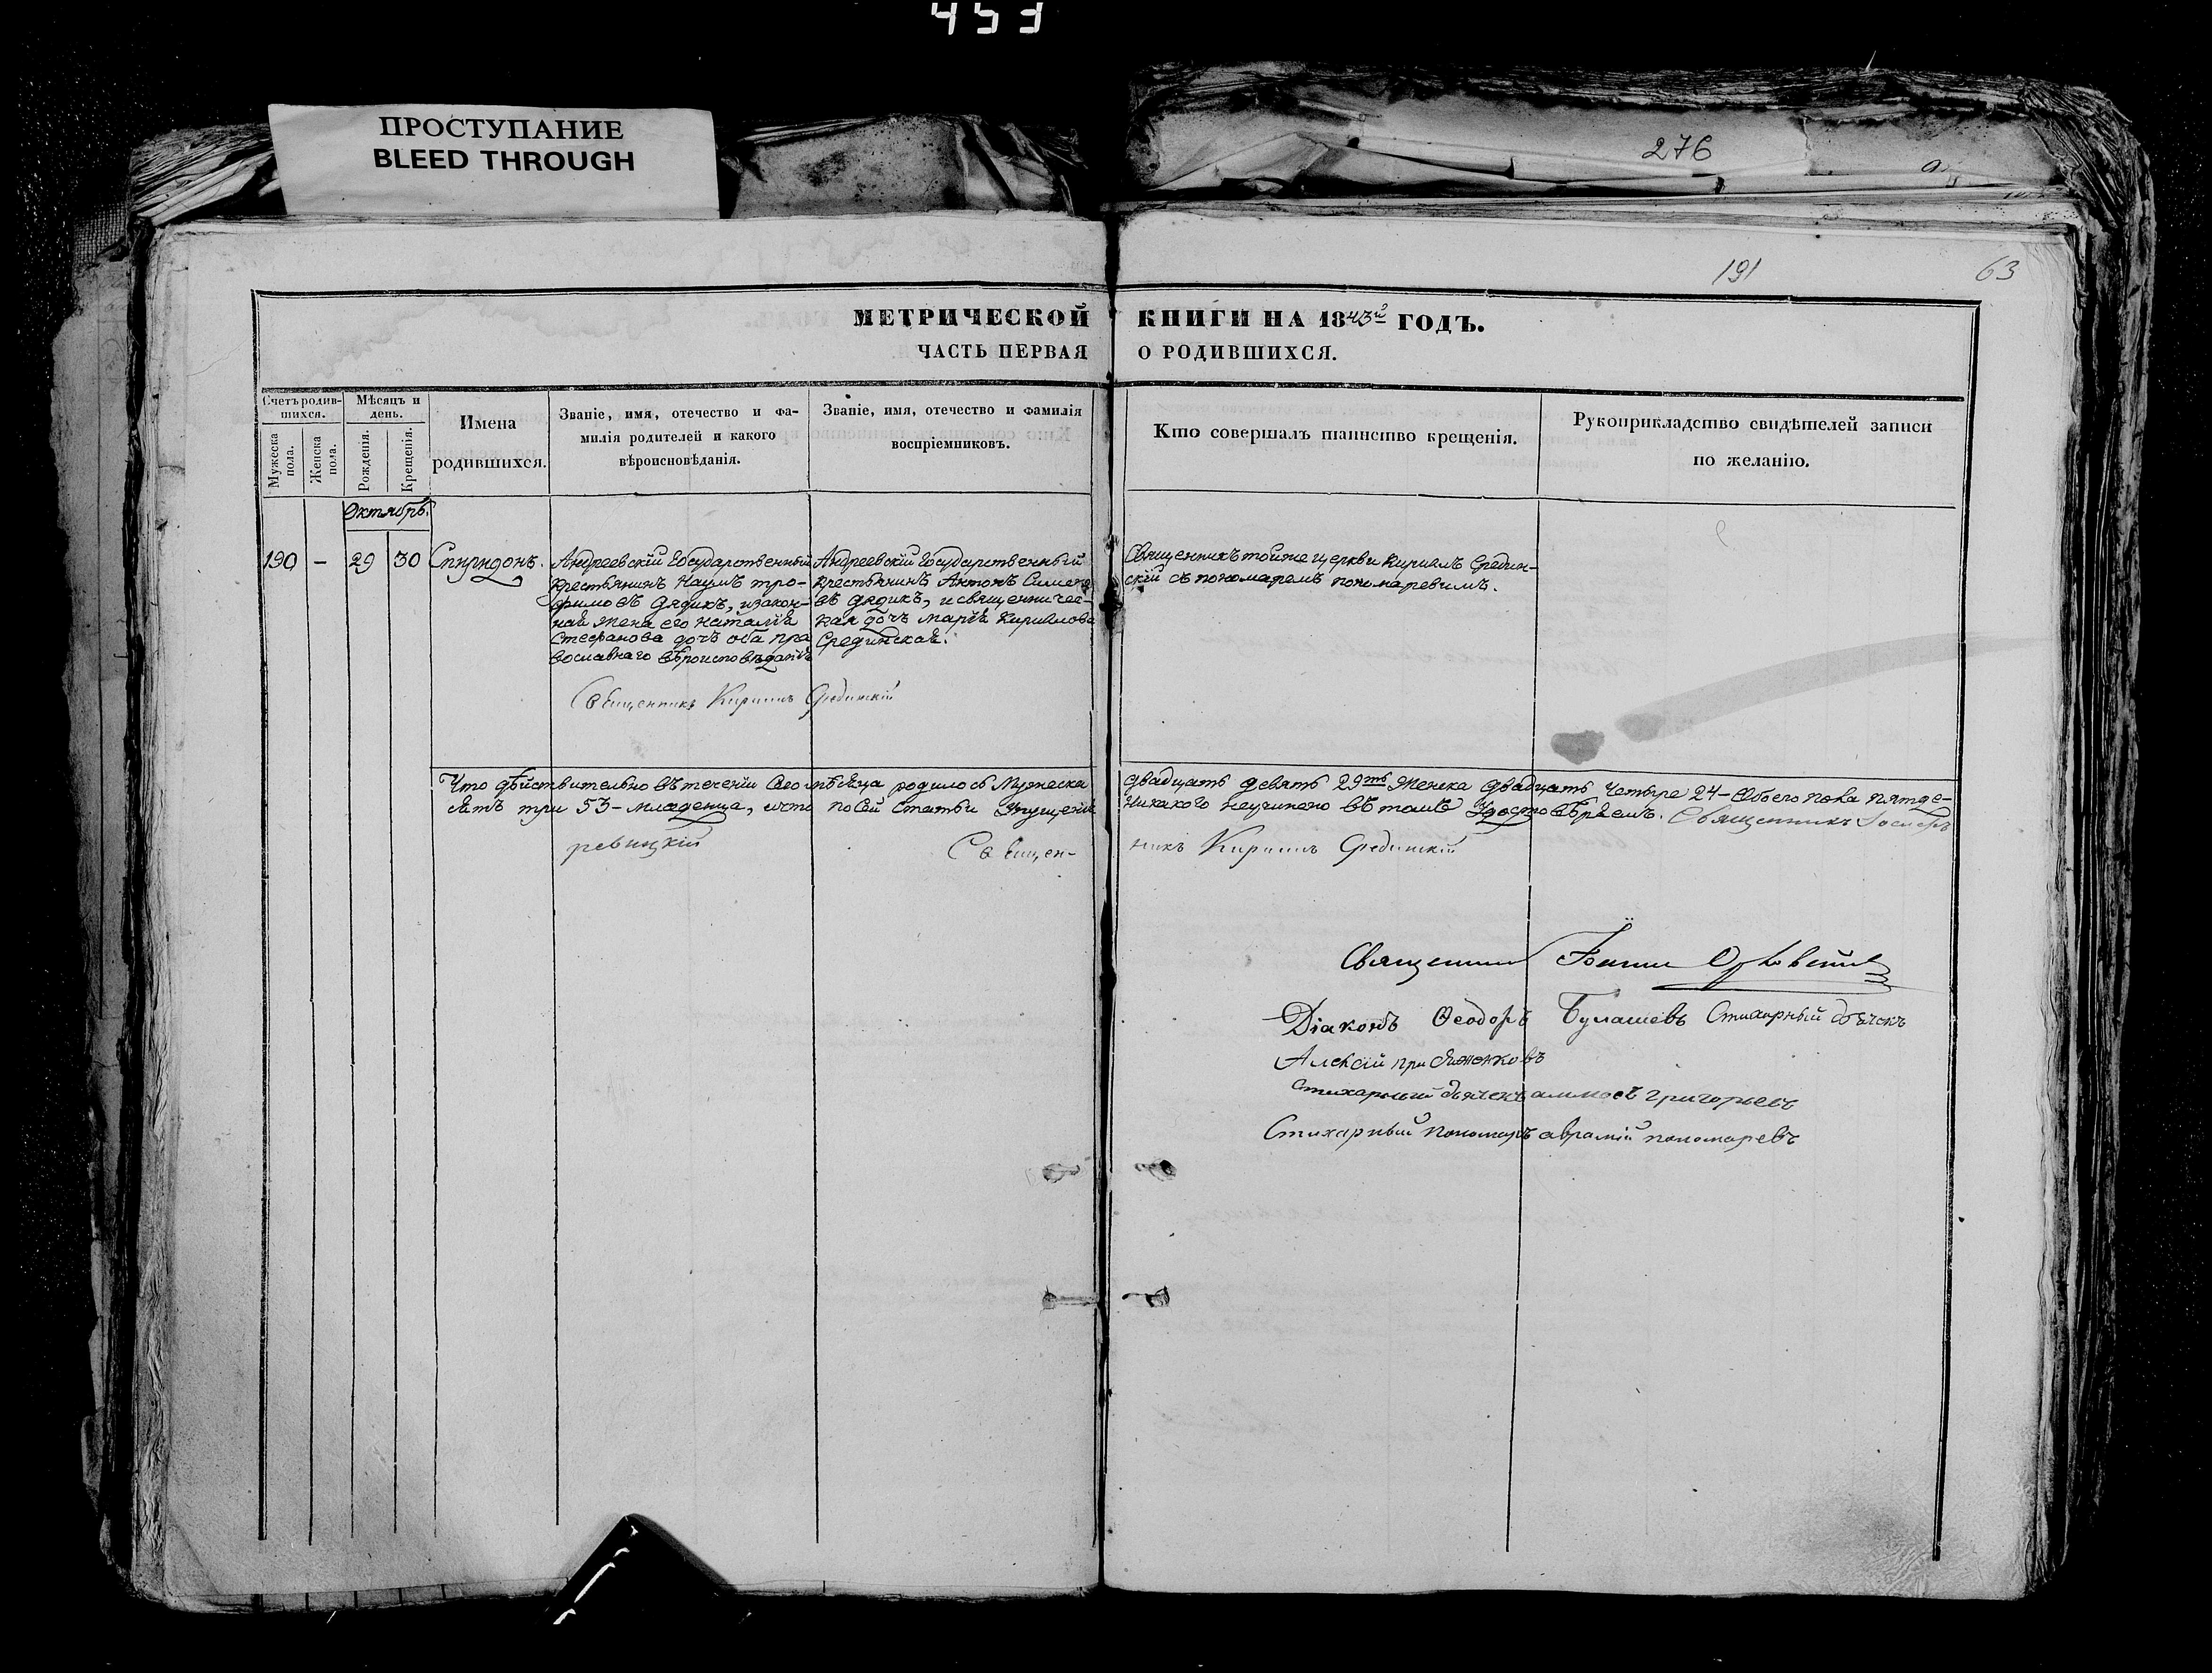 453
ПРОСТУПАНИЕ
BLEED THROUGH
276
191
63
МЕТРИЧЕСКОЙ КНИГИ НА 1843й ГОДЪ.
ЧАСТЬ ПЕРВАЯ О РОДИВШИХСЯ.
Счетъ родив-
шихся.
Мужеска
пола.
Женска
пола.
Мѣсяцъ и
день.
Рожденія.
Крещенія.
Имена
родившихся.
Званіе, имя, отечество и фа-
милія родителей и какого
вѣроисповѣданія.
Званіе, имя, отечество и фамилія
воспріемниковъ.
Кто совершалъ таинство крещенія.
Рукоприкладство свидѣтелей записи
по желанію.
Октябрь.
190 – 29 30 Спиридонъ.
Андреевскій Государственный
крестьянинъ Наумъ Тро-
фимовъ Дядикъ, и закон-
ная жена его Наталія
Стефанова дочь оба пра
вославнаго вѣроисповѣданія
Андреевскій Государственный
крестьянинъ Антонъ Симоно
въ Дядикъ, и священничес-
кая дочь Марія Кирилова
Срединская.
Священникъ тойже церкви Кирилъ Средин-
скій съ пономаремъ Пономаревимъ.
Священникъ Кирилъ Срединскій
Что дѣйствительно въ теченіи сего мѣсяца родилось Мужеска двадцать девять 29ть Женска двадцать четыре 24 – Обоего пола пятде-
сятъ три 53 – младенца, и что по сей статьи никакого неучинено въ томъ Удостовѣряемъ. Священникъ
ревицкій Священ- никъ Кирилъ Срединскій
Священникъ
Діаконъ Ѳеодоръ Булашевъ Стихарный дьячекъ
Алексій
Стихарный дьячекъ Григорьевъ
Стихарный пономарь Аврамій Пономаревъ